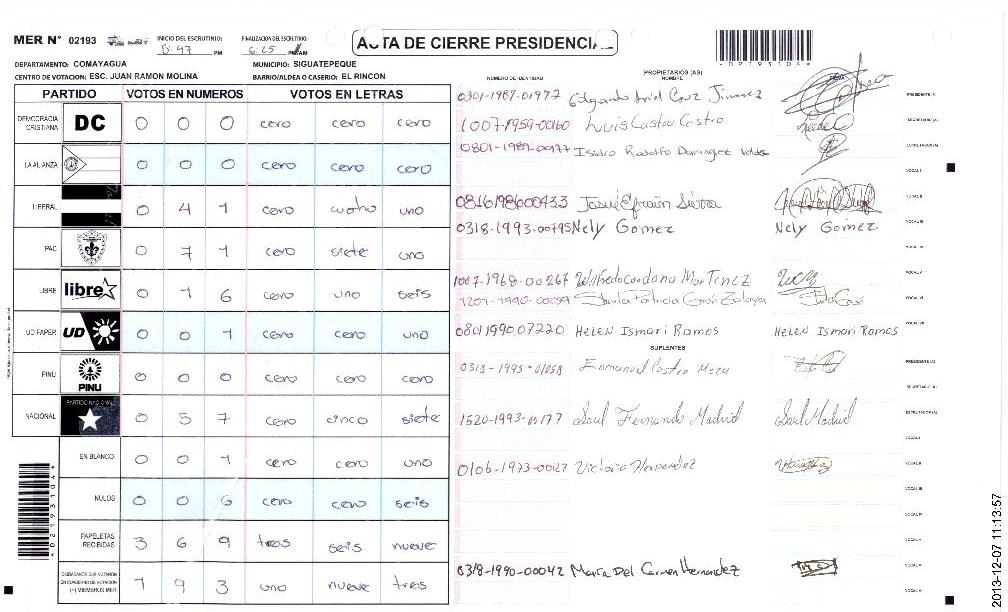 MER N° 02193
INICIO DEL ESCRUTINIO: 5:47 PM
FINALIZACION DEL ESCRUTINIO: 6:25 PM/AM
ACTA DE CIERRE PRESIDENCIAL
*02193104*
DEPARTAMENTO: COMAYAGUA
MUNICIPIO: SIGUATEPEQUE
CENTRO DE VOTACION: ESC. JUAN RAMON MOLINA
BARRIO/ALDEA O CASERIO: EL RINCON
PARTIDO VOTOS EN NUMEROS VOTOS EN LETRAS
DEMOCRACIA CRISTIANA DC 0 0 0 cero cero cero
LA ALIANZA 0 0 0 cero cero cero
LIBERAL 0 4 1 cero cuatro uno
PAC 0 7 1 cero siete uno
LIBRE libre 0 1 6 cero uno seis
UD FAPER UD 0 0 1 cero cero uno
PINU PINU 0 0 0 cero cero cero
NACIONAL PARTIDO NACIONAL 0 5 7 cero cinco siete
EN BLANCO 0 0 1 cero cero uno
NULOS 0 0 6 cero cero seis
PAPELETAS RECIBIDAS 3 6 9 tres seis nueve
CIUDADANOS QUE VOTARON EN CUADERNO DE VOTACION (+) MIEMBROS MER 1 9 3 uno nueve tres
*02193104*
NUMERO DE IDENTIDAD
PROPIETARIOS (AS)
NOMBRE
0301-1987-01977 Cruz PRESIDENTE (A)
1007-1959-00160 Luis Castro Castro SECRETARIO (A)
0801-1989-00977 Isidro Rodolfo Dominguez ESCRUTADOR (A)
VOCAL I
0816198600433 Josué Efraín Sierra VOCAL II
0318-1993-00795 Nely Gomez Nely Gomez. VOCAL III
VOCAL IV
1007-1968-00267 Wilfredo Cardona Martinez VOCAL V
1201-1990-00059 VOCAL VI
0801199007220 HELEN Ismari Ramos HELEN Ismari Ramos VOCAL VII
SUPLENTES
0318-1995-01058 Emmanuel Castro Meza PRESIDENTE (A)
SECRETARIO (A)
1520-1993-00177 Saul Fernando Madrid Saul Madrid ESCRUTADOR (A)
VOCAL I
0106-1973-00127 Victoria Hernandez VOCAL II
VOCAL III
VOCAL IV
VOCAL V
0318-1990-00042 Maria Del Carmen Hernandez VOCAL VI
VOCAL VII
2013-12-07 11:13:57